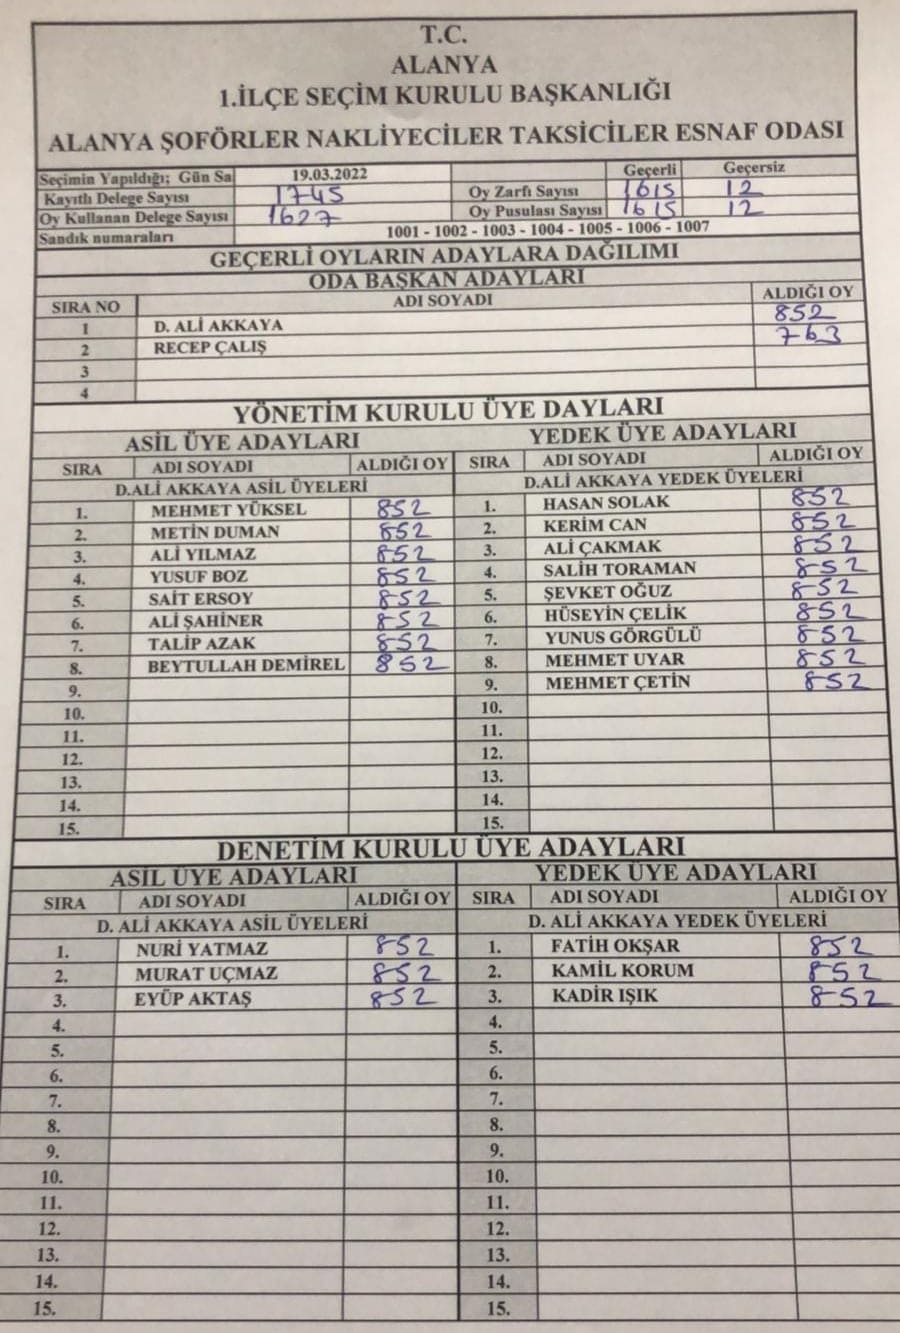 T.C.
ALANYA
1.İLÇE SEÇİM KURULU BAŞKANLIĞI
ALANYA ŞOFÖRLER NAKLİYECİLER TAKSİCİLER ESNAF ODASI
Seçimin Yapıldığı; Gün Sa 19.03.2022 Geçerli Geçersiz
Kayıtlı Delege Sayısı 1745 Oy Zarfı Sayısı 1615 12
Oy Kullanan Delege Sayısı 1627 Oy Pusulası Sayısı 1615 12
Sandık numaraları 1001 - 1002 - 1003 - 1004 - 1005 - 1006 - 1007
GEÇERLİ OYLARIN ADAYLARA DAĞILIMI
ODA BAŞKAN ADAYLARI
SIRA NO ADI SOYADI ALDIĞI OY
1 D. ALİ AKKAYA 852
2 RECEP ÇALIŞ 763
3
4
YÖNETİM KURULU ÜYE DAYLARI
ASİL ÜYE ADAYLARI YEDEK ÜYE ADAYLARI
SIRA ADI SOYADI ALDIĞI OY SIRA ADI SOYADI ALDIĞI OY
D.ALİ AKKAYA ASİL ÜYELERİ D.ALİ AKKAYA YEDEK ÜYELERİ
1. MEHMET YÜKSEL 852 1. HASAN SOLAK 852
2. METİN DUMAN 852 2. KERİM CAN 852
3. ALİ YILMAZ 852 3. ALİ ÇAKMAK 852
4. YUSUF BOZ 852 4. SALİH TORAMAN 852
5. SAİT ERSOY 852 5. ŞEVKET OĞUZ 852
6. ALİ ŞAHİNER 852 6. HÜSEYİN ÇELİK 852
7. TALİP AZAK 852 7. YUNUS GÖRGÜLÜ 852
8. BEYTULLAH DEMİREL 852 8. MEHMET UYAR 852
9. 9. MEHMET ÇETİN 852
10. 10.
11. 11.
12. 12.
13. 13.
14. 14.
15. 15.
DENETİM KURULU ÜYE ADAYLARI
ASİL ÜYE ADAYLARI YEDEK ÜYE ADAYLARI
SIRA ADI SOYADI ALDIĞI OY SIRA ADI SOYADI ALDIĞI OY
D. ALİ AKKAYA ASİL ÜYELERİ D. ALİ AKKAYA YEDEK ÜYELERİ
1. NURİ YATMAZ 852 1. FATİH OKŞAR 852
2. MURAT UÇMAZ 852 2. KAMİL KORUM 852
3. EYÜP AKTAŞ 852 3. KADİR IŞIK 852
4. 4.
5. 5.
6. 6.
7. 7.
8. 8.
9. 9.
10. 10.
11. 11.
12. 12.
13. 13.
14. 14.
15. 15.